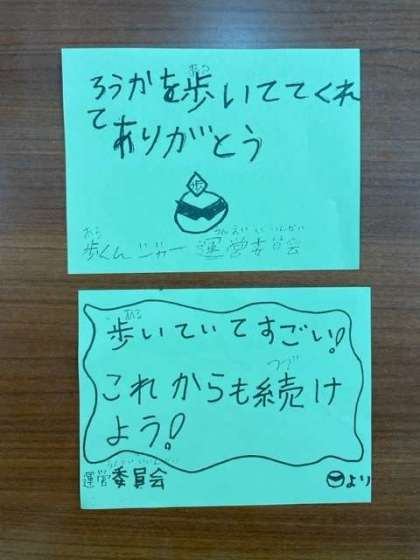 ろうかを歩いててくれ
てありがとう
歩
歩くんジャー 運営委員会
歩いていてすごい!
これからも続け
よう!
運営委員会 より